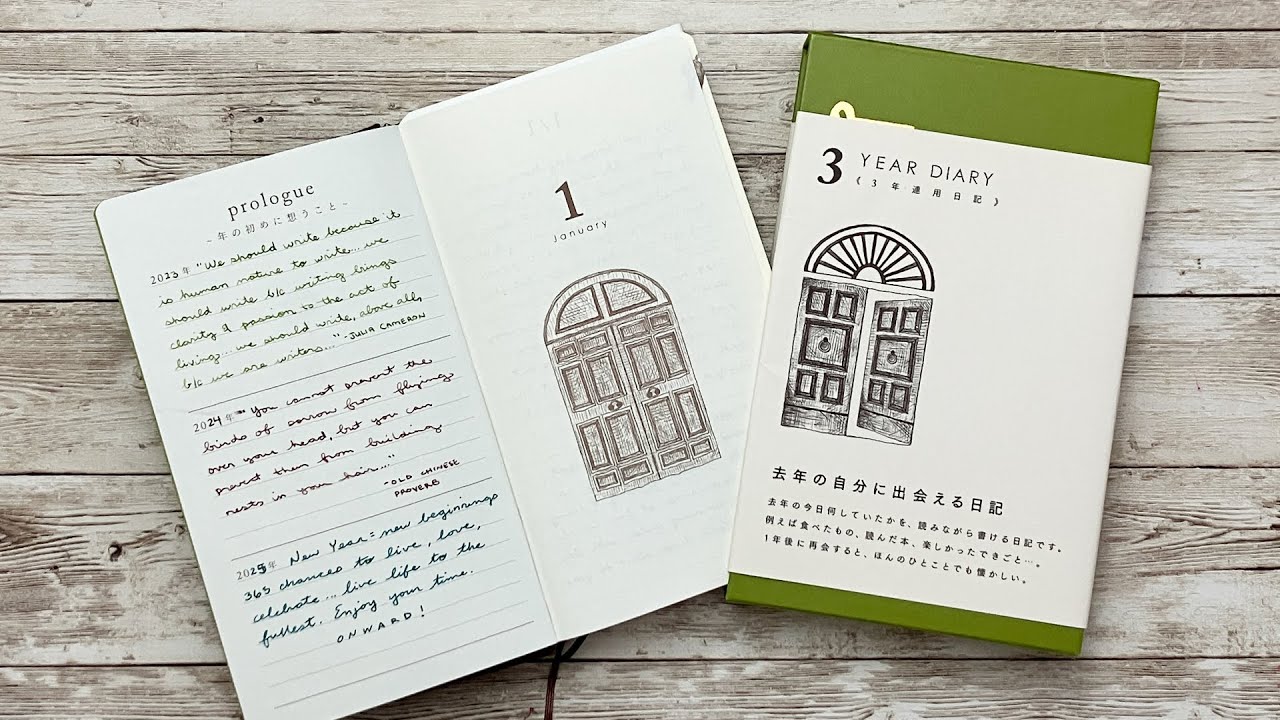 prologue
~ 年の初めに想うこと ~
2023年 "We should write because it
is human nature to write... we
should write b/c writing brings
clarity & passion to the art of
living... we should write, above all,
b/c we are writers..." -JULIA CAMERON
2024年 "You cannot prevent the
birds of sorrow from flying
over your head, but you can
prevent them from building
nests in your hair..."
-OLD CHINESE
PROVERB
2025年 New Year = new beginnings
365 chances to live, love,
celebrate... live life to the
fullest. Enjoy your time.
ONWARD!
1
January
3 YEAR DIARY
《3年連用日記》
去年の自分に出会える日記
去年の今日何していたかを、読みながら書ける日記です。
例えば食べたもの、読んだ本、楽しかったできごと…。
1年後に再会すると、ほんのひとことでも懐かしい。